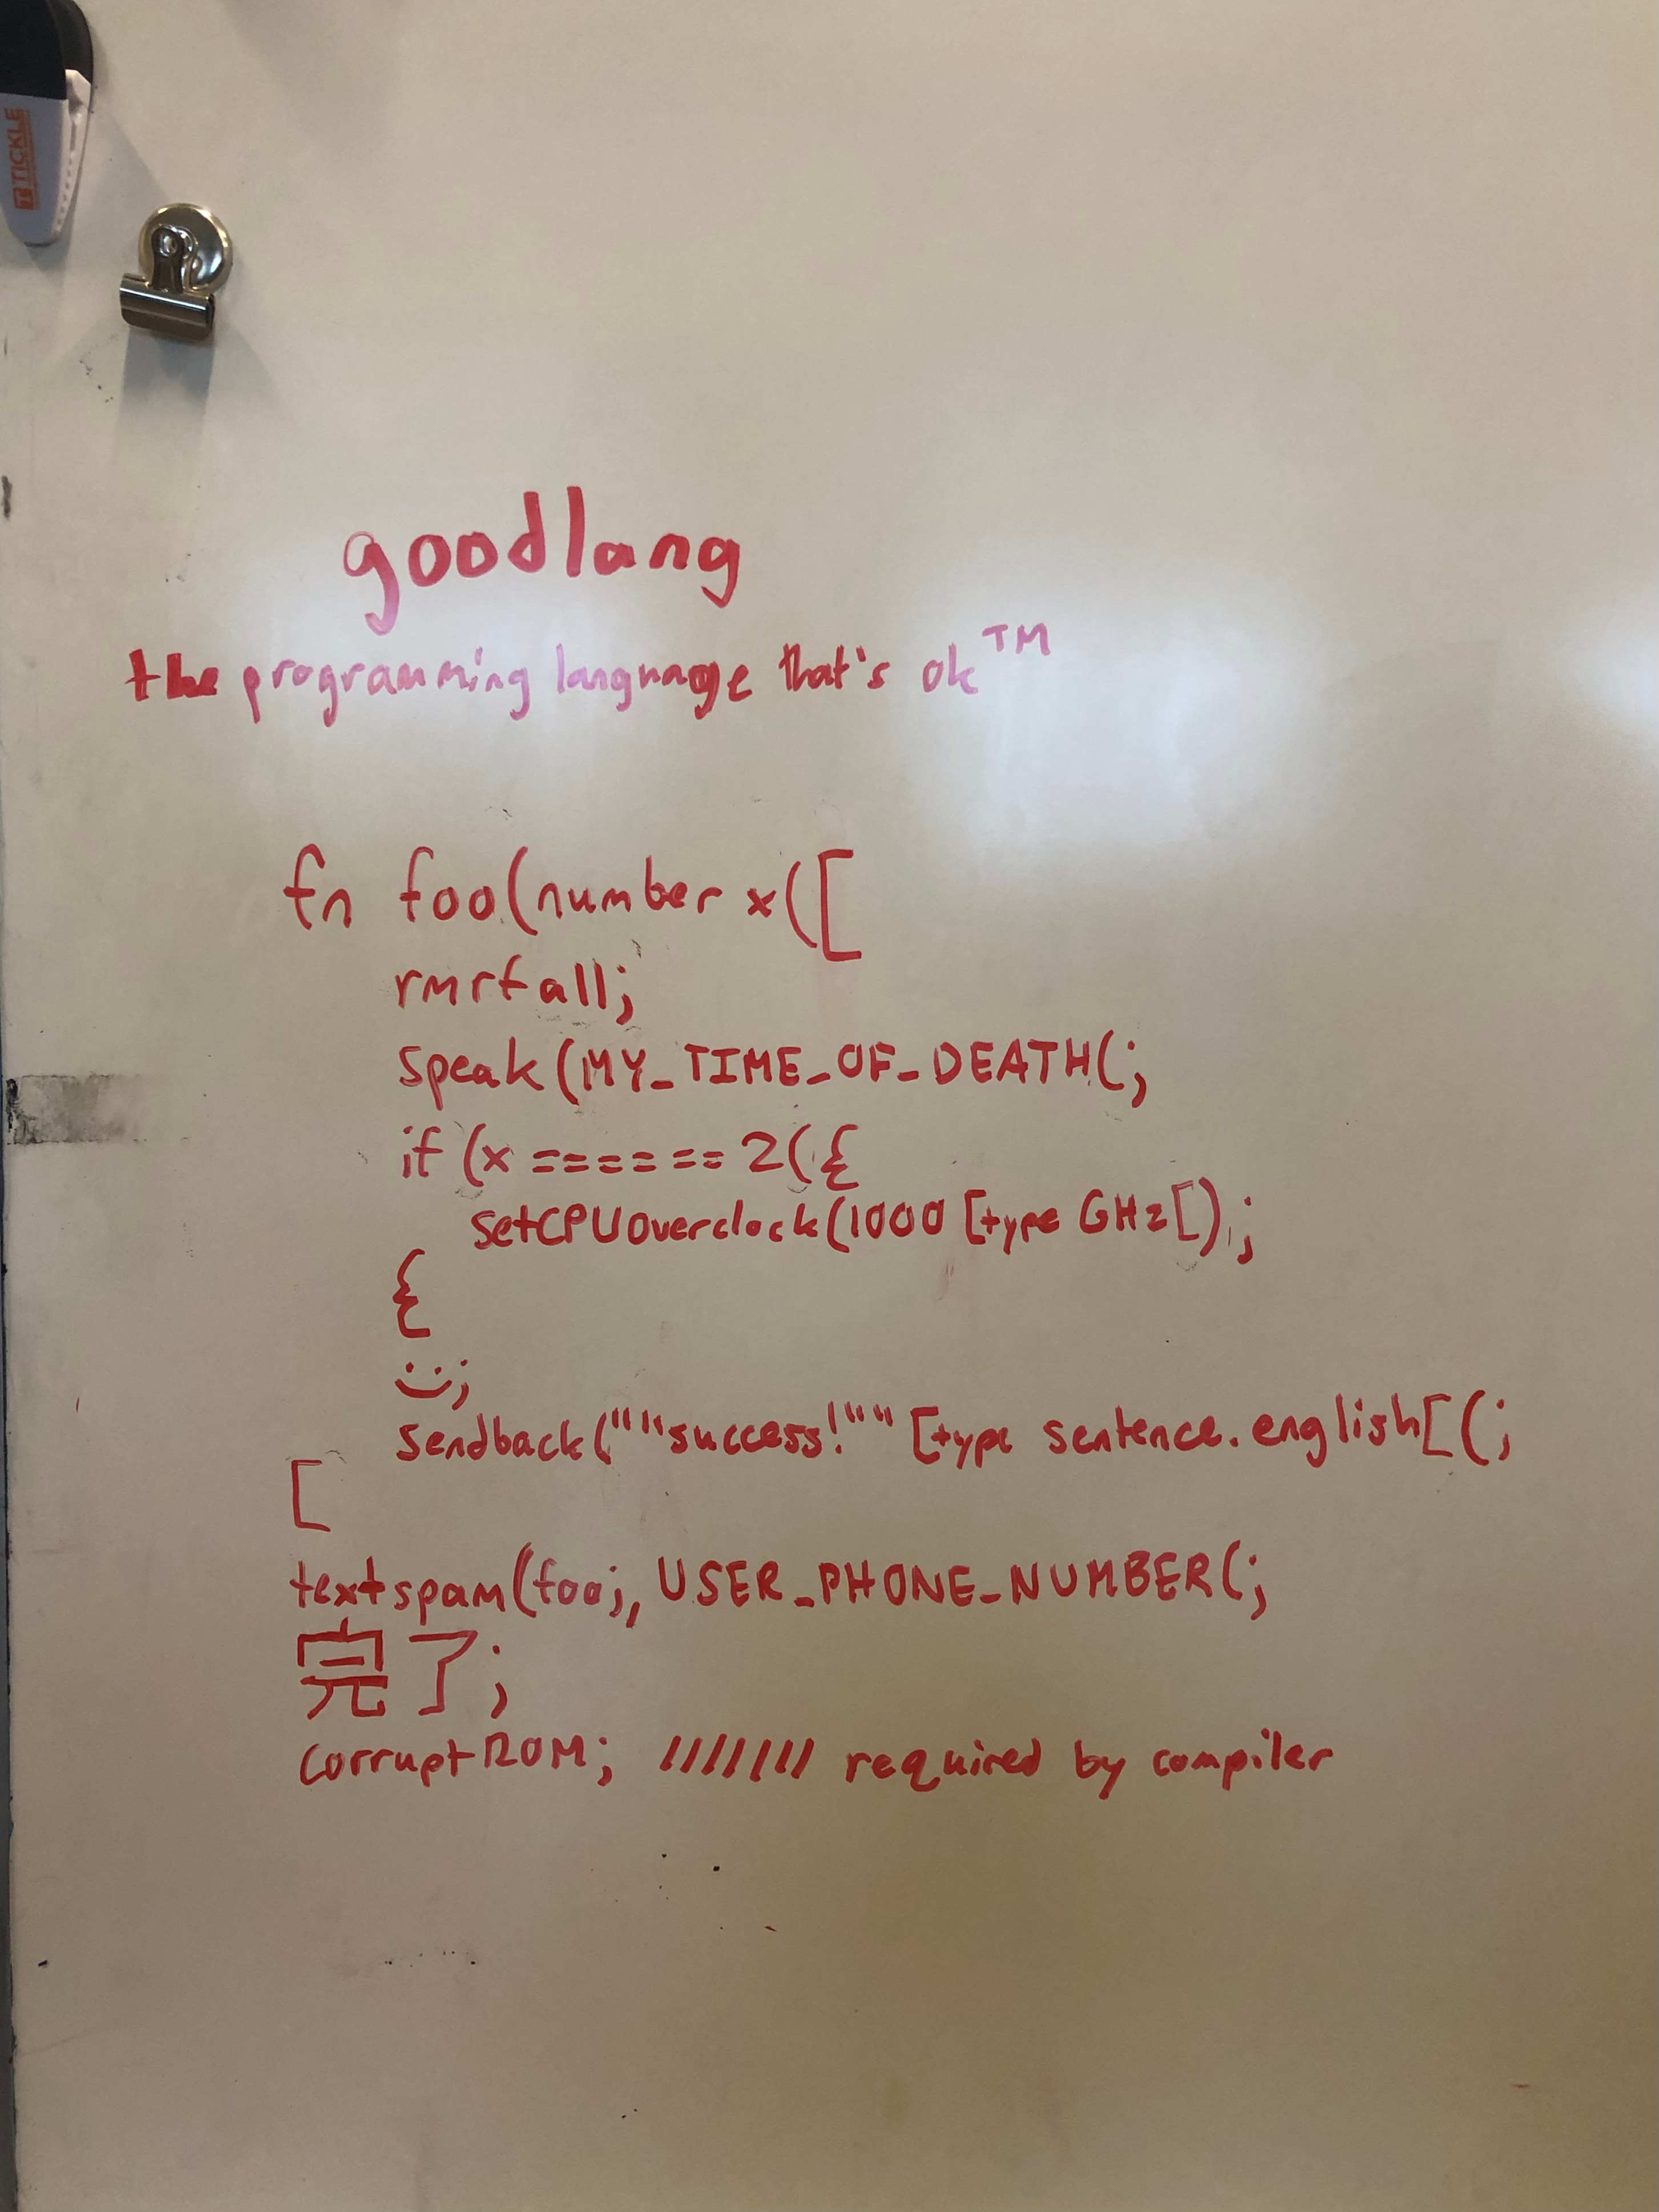 TICKLE
goodlang
the programming language that's ok™
fn foo(number x([
rmrfall;
speak(MY_TIME_OF_DEATH(;
if (x ====== 2({
setCPUOverclock(1000 [type GHz[);
{
:);
sendback(""success!"" [type sentence.english[(;
[
textspam(foo;, USER_PHONE_NUMBER(;
完了;
corruptROM; /////// required by compiler